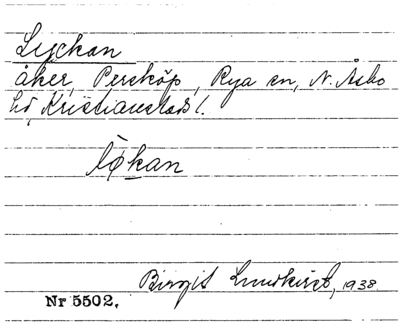 Lyckan
åker, Perstorp, Rya sn, N. Åsbo
hd, Kristianstads l.
løkan
Birgit Lundkvist, 1938.
Nr 5502.